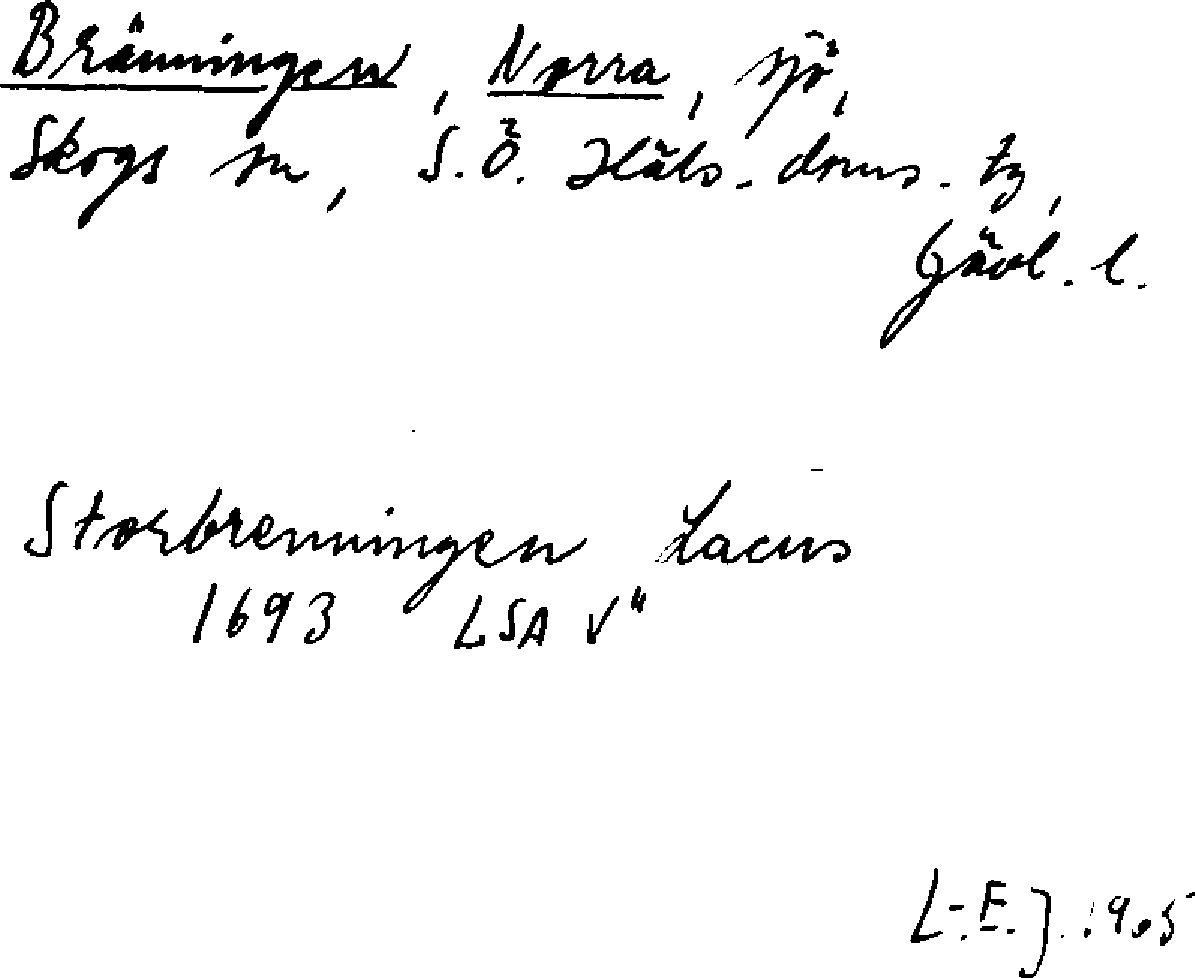 Bränningen, Norra, sjö,
Skogs sn, S.Ö. Häls. doms. tg,
Gävl. l.
Storbrenningen Lacus
1693 LSA V"
L.-E.J. 1905